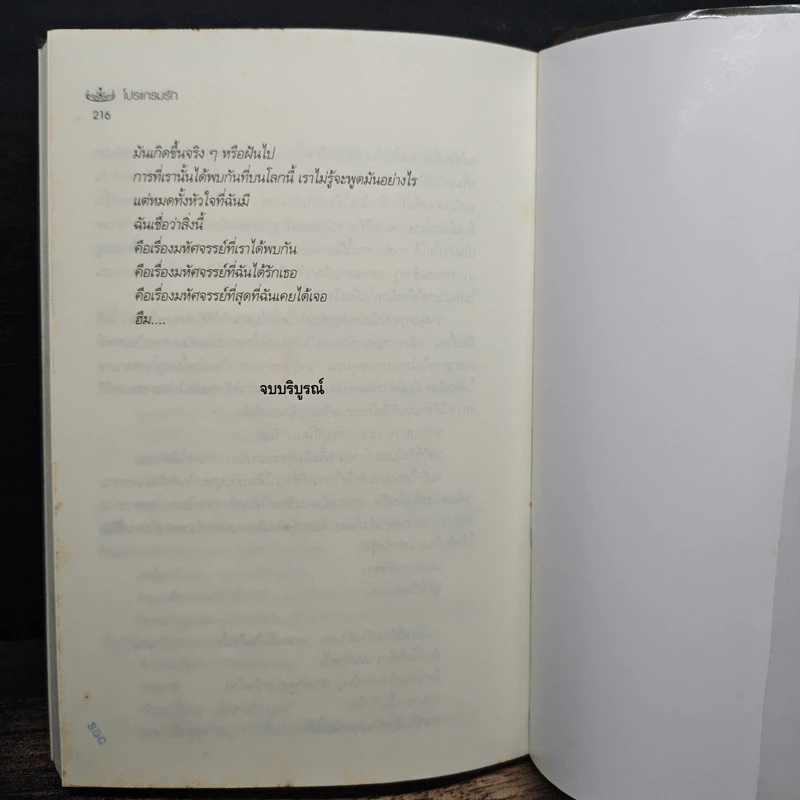 โปรแกรมรัก
216
มันเกิดขึ้นจริง ๆ หรือฝันไป
การที่เรานั้นได้พบกันที่บนโลกนี้ เราไม่รู้จะพูดมันอย่างไร
แต่หมดทั้งหัวใจที่ฉันมี
ฉันเชื่อว่าสิ่งนี้
คือเรื่องมหัศจรรย์ที่เราได้พบกัน
คือเรื่องมหัศจรรย์ที่ฉันได้รักเธอ
คือเรื่องมหัศจรรย์ที่สุดที่ฉันเคยได้เจอ
ฮืม....
จบบริบูรณ์
SBG